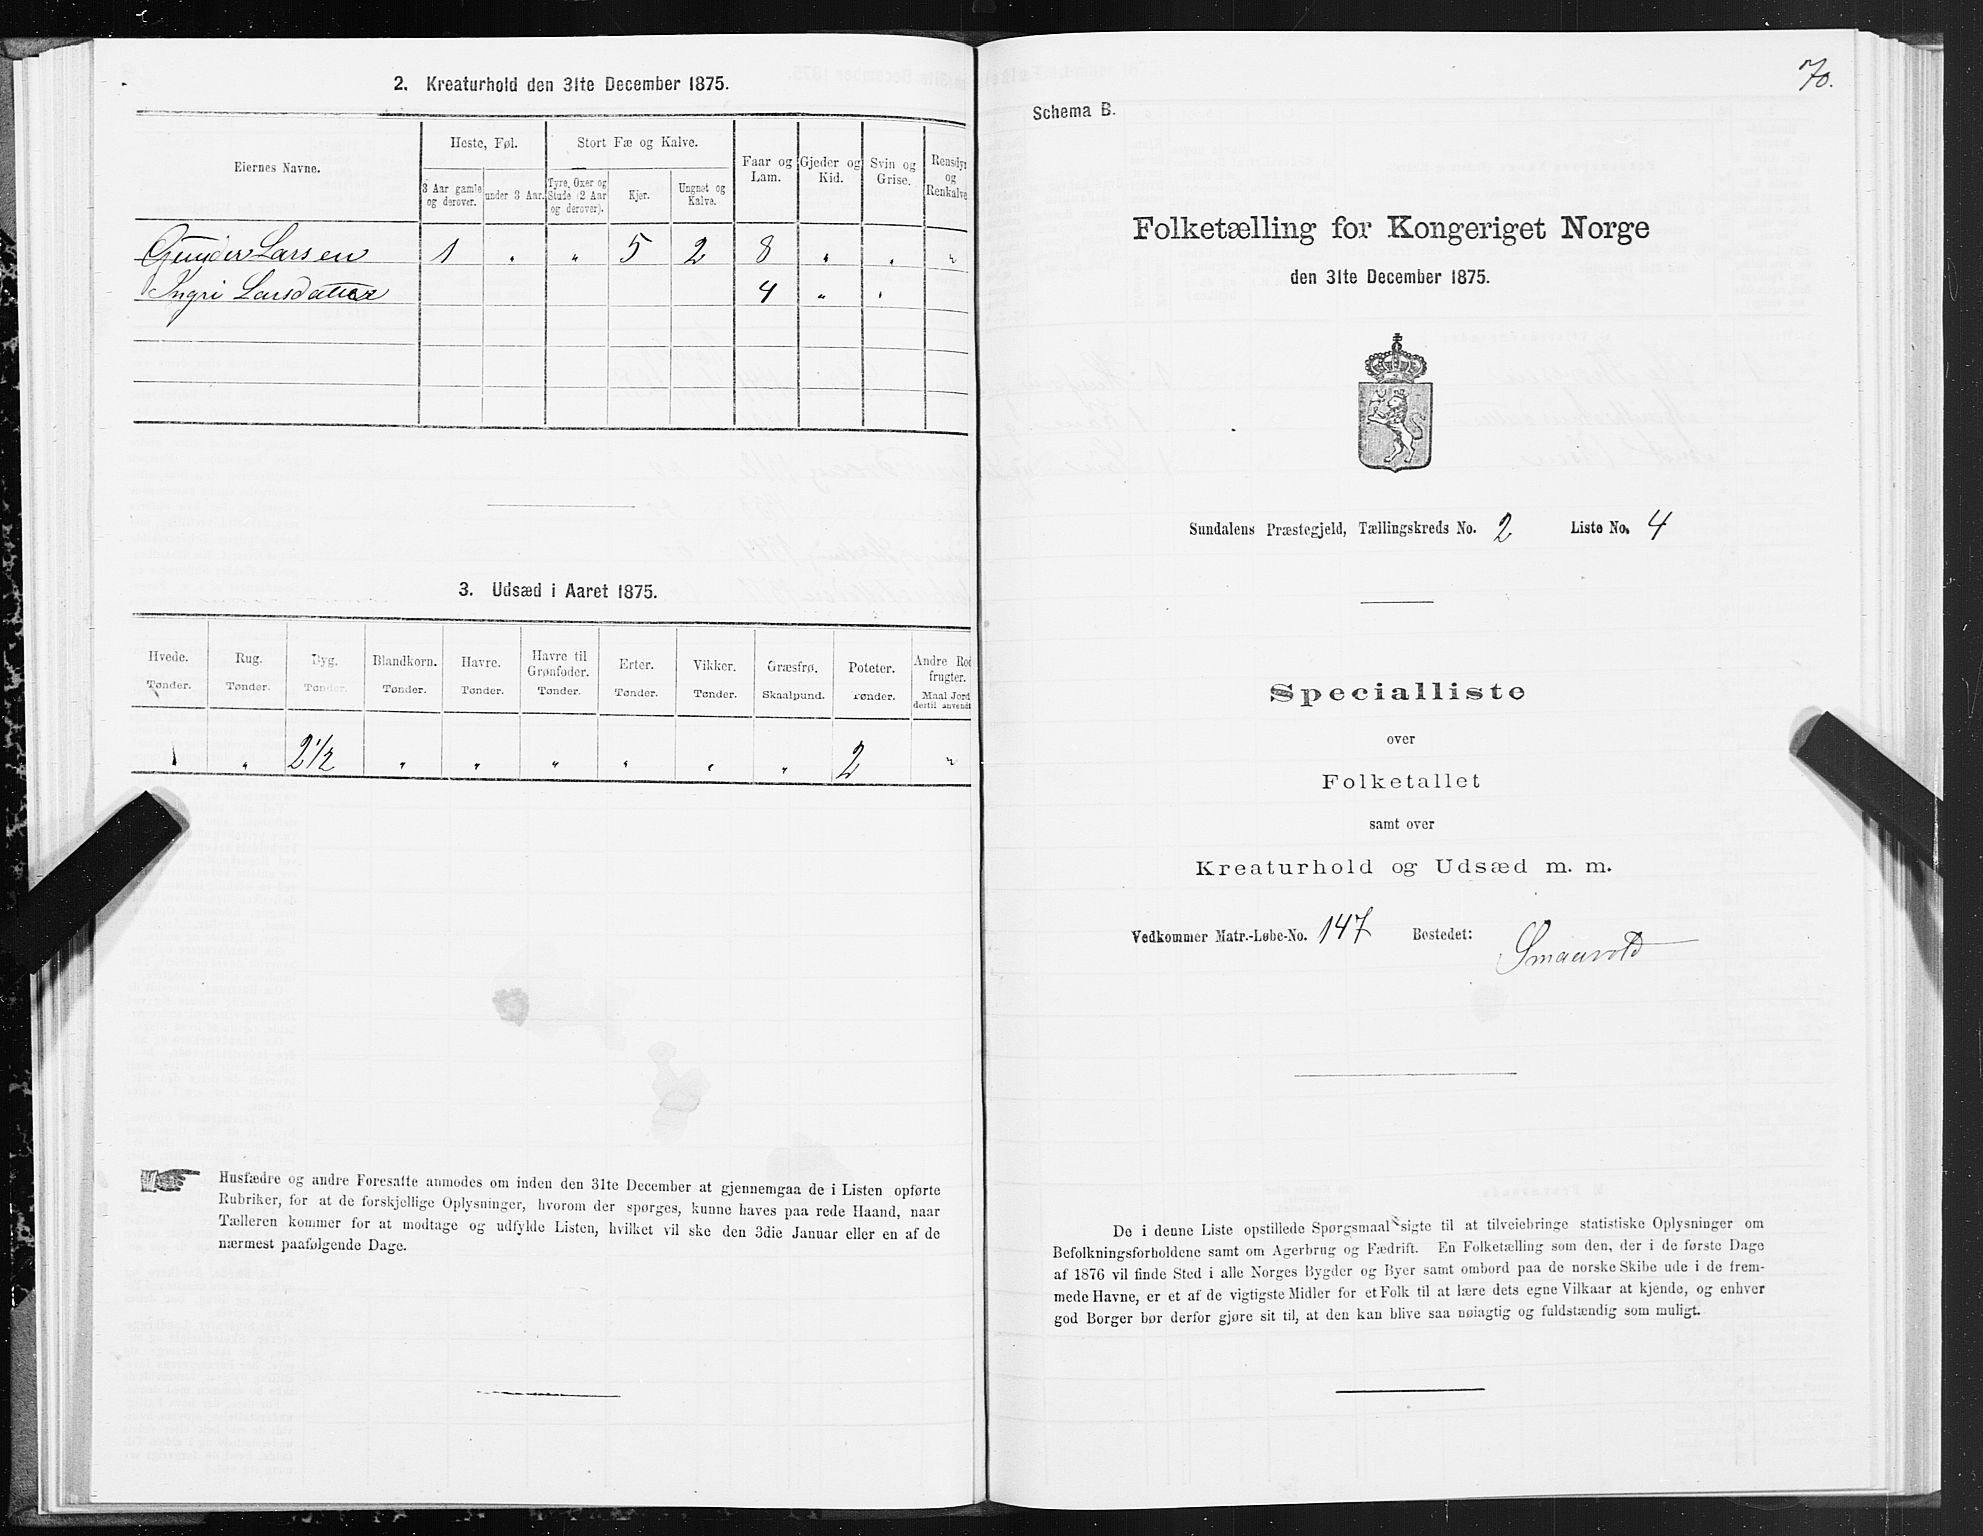 2. Kreaturhold den 31te December 1875.
Eiernes Navne.
Heste, Føl.
Stort Fæ og Kalve.
3 Aar gamle og derover.
under 3 Aar.
Tyre, Oxer og Stude (2 Aar og derover).
Kjør.
Ungnet og Kalve.
Faar og Lam.
Gjeder og Kid.
Svin og Grise.
Rensdyr og Renkalve
Gunder Larsen 1 " " 5 2 8 " " "
Ingri Larsdatter 4 " "
3. Udsæd i Aaret 1875.
Hvede. Rug. Byg. Blandkorn. Havre. Havre til Grønfoder. Erter. Vikker. Græsfrø. Poteter. Andre Rod frugter.
Tønder. Tønder. Tønder. Tønder. Tønder. Tønder. Tønder. Tønder. Skaalpund. Tønder. Maal Jord dertil anvendt
" " 2 1/2 " " " " " " 2 "
Husfædre og andre Foresatte anmodes om inden den 31te December at gjennemgaa de i Listen opførte
Rubriker, for at de forskjellige Oplysninger, hvorom der spørges, kunne haves paa rede Haand, naar
Tælleren kommer for at modtage og udfylde Listen, hvilket vil ske den 3die Januar eller en af de
nærmest paafølgende Dage.
70.
Schema B.
Folketælling for Kongeriget Norge
den 31te December 1875.
Sundalens Præstegjeld, Tællingskreds No. 2 Liste No. 4
Specialliste
over
Folketallet
samt over
Kreaturhold og Udsæd m. m.
Vedkommer Matr.-Løbe-No. 147 Bostedet: Smaavold
De i denne Liste opstillede Spørgsmaal sigte til at tilveiebringe statistiske Oplysninger om
Befolkningsforholdene samt om Agerbrug og Fædrift. En Folketælling som den, der i de første Dage
af 1876 vil finde Sted i alle Norges Bygder og Byer samt ombord paa de norske Skibe ude i de frem-
mede Havne, er et af de vigtigste Midler for et Folk til at lære dets egne Vilkaar at kjende, og enhver
god Borger bør derfor gjøre sit til, at den kan blive saa nøiagtig og fuldstændig som muligt.